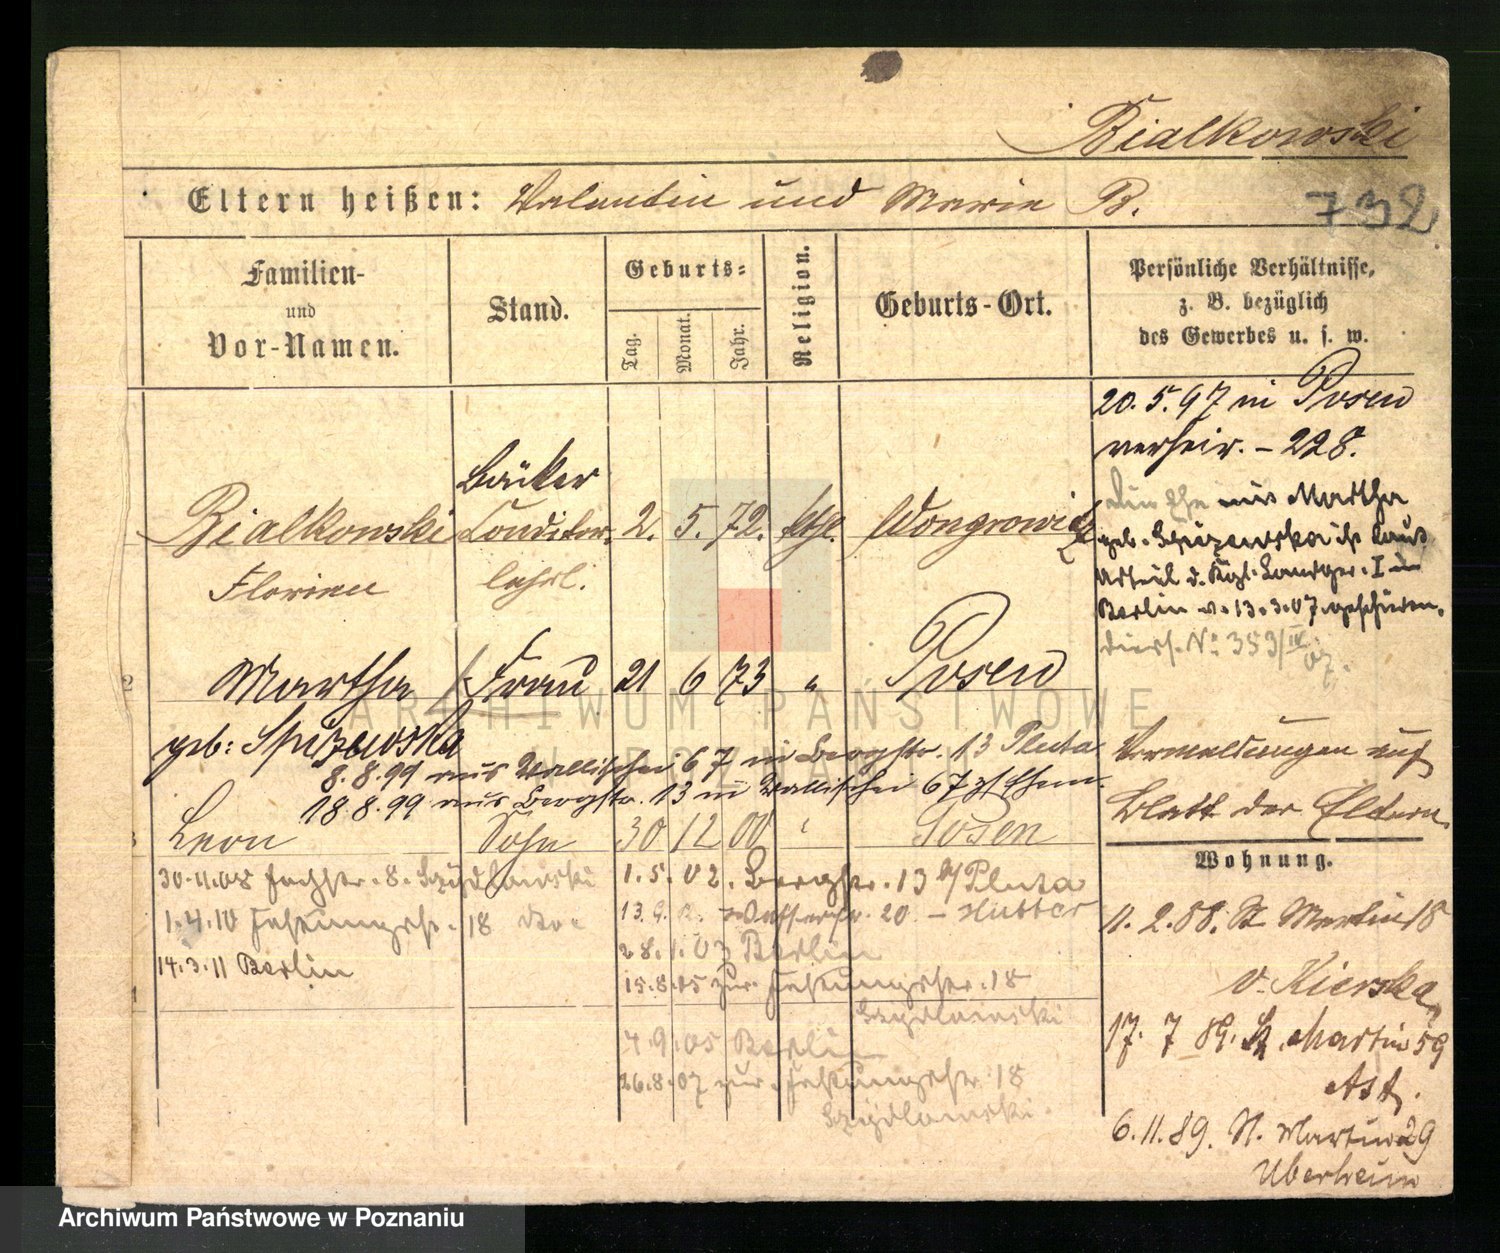 Bialkowski
Eltern heißen: Valentin und Marie B.
732
Familien-
und
Vor-Namen.
Stand.
Geburts-
Tag.
Monat.
Jahr.
Religion.
Geburts-Ort.
Persönliche Verhältnisse,
z. B. bezüglich
des Gewerbes u. s. w.
20.5.97 in Posen
verheir. - 228.
Bäcker
Bialkowski Conditor 2. 5. 72. kth. Wongrowitz
Florian lehrl.
Die Ehe mit Martha
geb. Spizewska ist laut
Urteil d. Kgl. Landger. I in
Berlin v. 13.3.07 geschieden.
diess. No 353/IV 07.
2 Martha Frau 21 6 73 " Posen
geb: Spizewska
8.8.99 aus Wallischei 67 in Bergstr. 13 Pluta
18.8.99 aus Bergstr. 13 in Wallischei 67
3 Leon Sohn 30 12 00 " Posen
Vermeldungen auf
Blatt der Eltern
Wohnung.
30.11.08 8. Szydlowski
1.4.10 18
14.3.11 Berlin
1.5.02. Bergstr. 13 b/ Pluta
Wasserstr. 20. - Hutter
28.1.03 Berlin
15.8.05 zur. 18
Szydlowski
4
7.9.05 Berlin
26.8.07 zur. 18
Szydlowski
11. 2. 88. St Martin 18
v. Kierska
17. 7 89. St. Martin 59
Ast.
6. 11. 89. St. Martin 29
ARCHIWUM PAŃSTWOWE
W POZNANIU
Archiwum Państwowe w Poznaniu